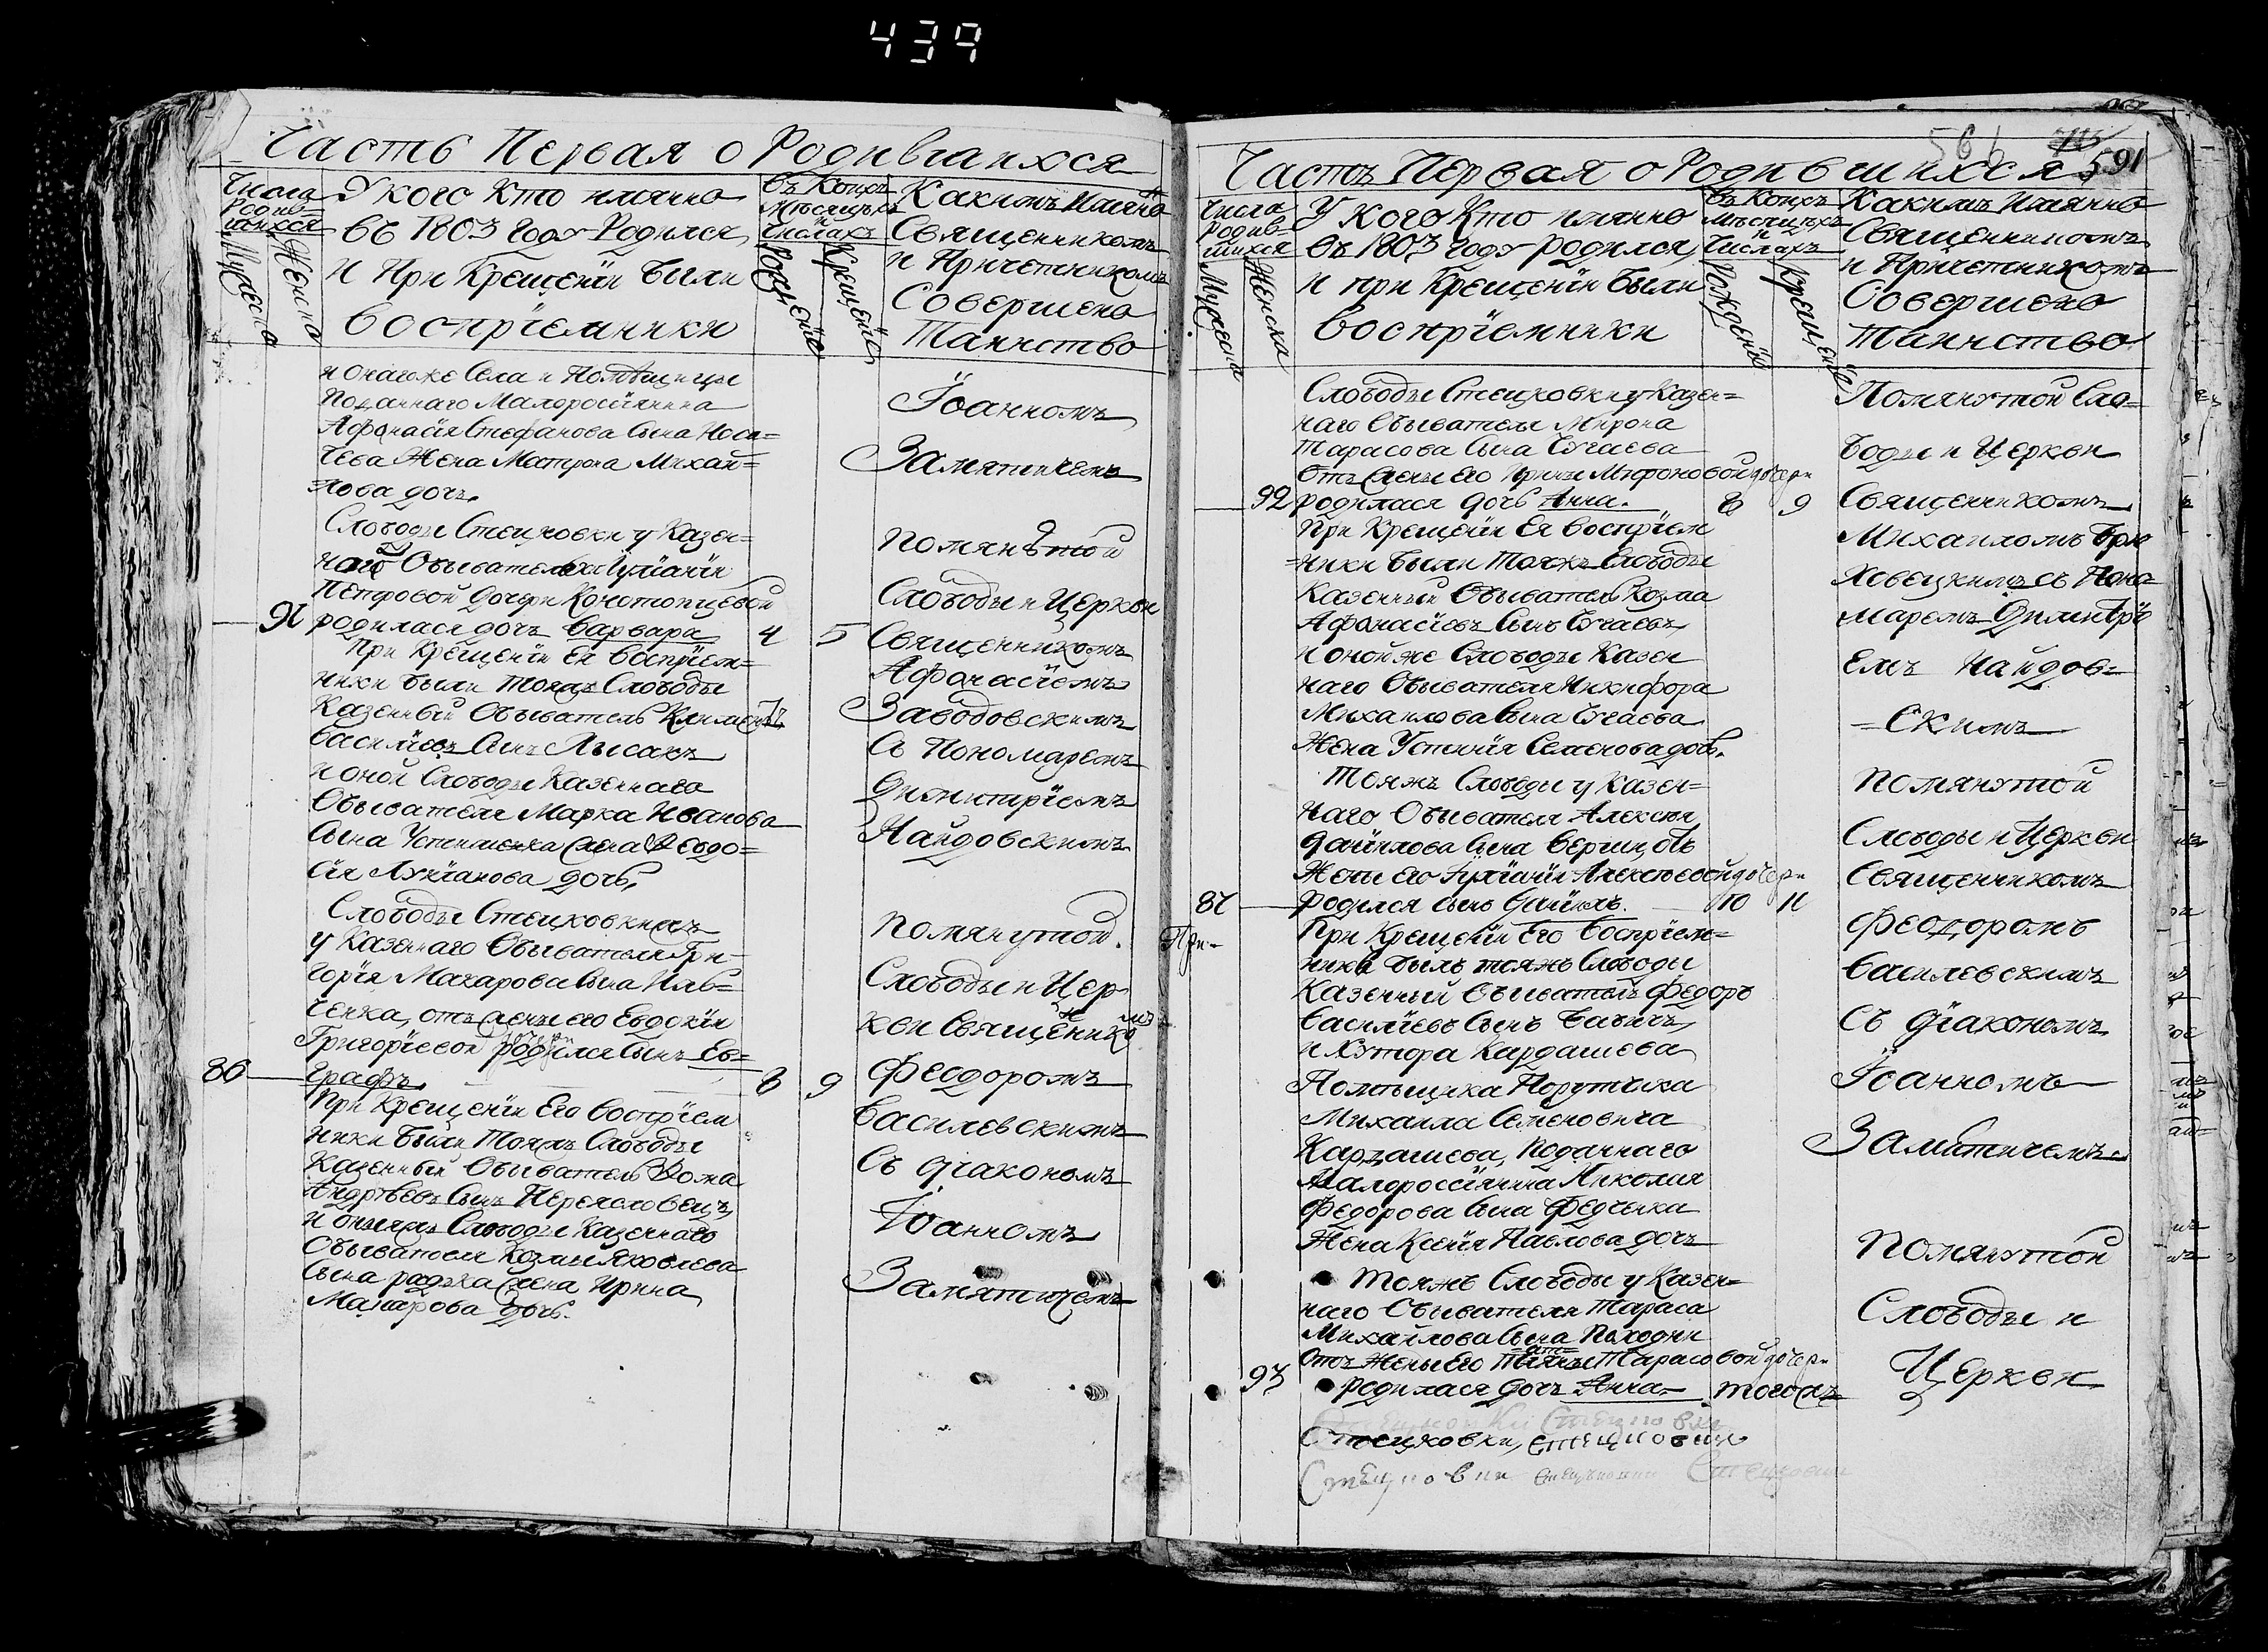 439
Часть Первая о Родившихся
Числа
Родив=
шихся
Мужеска
Женска
У кого Кто имянно
въ 1803 году Родился,
и При Крещенїи были
воспрїемники
въ Коихъ
Мѣсяцахъ
и
Числахъ
Рожденїе
Крещенїе
Какимъ Имянно
Священникомъ
и Причетникомъ
Совершено
Таинство
и онагоже Села и Помѣщицы
Подданнаго Малороссїянина
Афанасїя Стефанова Сына Носа=
чева Жена Матрона Михай=
лова дочь.
Їоанномъ
Замятичемъ
Слободы Стецковки у Казен=
ной Обывателки Їулїанїи
Петровой дочери Конотопцевой
91 родилася дочь Варвара 4 5
При Крещенїи Ея воспрїем=
ники были Тояжъ Слободы
Казенный Обыватель Климентъ
Василїевъ Сынъ Лысакъ
и оной Слободы Казеннаго
Обывателя Марка Иванова
Сына Устименка Жена Евдо=
кїя Лукїанова дочь,
помянутой
Слободы и Церкви
Священникомъ
Афанасїемъ
Заводовскимъ
Съ Пономаремъ
Димитрїемъ
Найдовскимъ.
Слободы Стецковкижъ
у Казеннаго Обывателя Гри-
горїя Макарова Сына Иль=
ченка, отъ жены его Евдокїи
Григорїевой дочери родился Сынъ Ев=
86 графъ. 8 9
При Крещенїи Его воспрїем
ники были Тояжъ Слободы
Казенный Обыватель Фома
Андрѣевъ Сынъ Переясловецъ,
и оныяжъ Слободы Казеннаго
Обывателя Козмы Яковлева
Сына радька Жена Ирина
Макарова дочь.
помянутой
Слободы и Цер-
кви Священникомъ
Феодоромъ
Василевскимъ
Съ дїакономъ
Їоанномъ
Замятичемъ
Часть Первая о Родившихся
591
Числа
Родив=
шихся
Мужеска
Женска
У кого Кто имянно
въ 1803 году родился,
и при Крещенїи были
воспрїемники
въ Коихъ
Мѣсяцѣхъ
и
Числахъ
Рожденїе
Крещенїе
Какимъ Имянно
Священникомъ
и Причетникомъ
Совершено
Таинство
Слободы Стецковки у Казен=
наго Обывателя Мирона
Тарасова Сына Бугаева
отъ жены его Ирины Мироновой дочери
92 родилася дочь Анна. 8 9
При Крещенїи Ея воспрїем
=ники были Тояжъ Слободы
Казенный Обыватель Козма
Афанасїевъ Сынъ Бугаевъ,
и оной же Слободы Казен
наго Обывателя Никифора
Михаилова Сына Бугаева
Жена Устинїя Семенова дочь.
Помянутой Сло=
боды и Церкви
Священникомъ
Михаиломъ
съ Поно
маремъ Димитрї
емъ Найдов=
=скимъ
Тояжъ Слободы у Казен=
наго Обывателя Алексѣя
данїилова Сына
Жены его Їулїанїи Алексѣевой дочери
87 Родился сынъ Данїилъ. 10 11
При-
При Крещенїи Его воспрїем=
ники былъ тояжъ Слободы
Казенный Обыватель Федоръ
Василїевъ Сынъ
и Хутора Кардашева
Помѣщика Порутчика
Михаила Семеновича
Кардашева, Подданнаго
Малороссїянина Николая
Федорова Сына Федченка
Жена Ксенїя Павлова дочь
помянутой
Слободы и Церкви
Священникомъ
Феодоромъ
Василевскимъ
Съ дїакономъ
Їоанномъ
Замятичемъ
Тояжъ Слободы у Казен=
наго Обывателя Тараса
Михайлова Сына
отъ Жены Его Татїаны Тарасовой дочери
93 родилася дочь Анна= тогожъ
Помянутой
Слободы и
Церкви
Стецковки, Стецковки
Стецковки